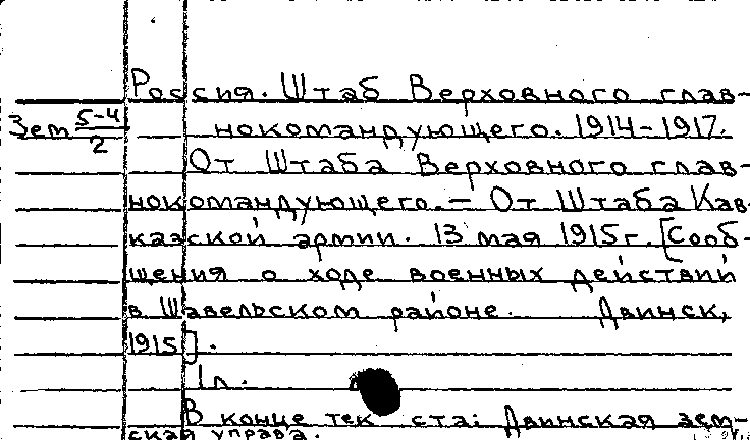 Россия. Штаб Верховного глав-
Зем 5-4/2 нокомандующего. 1914-1917.
От Штаба Верховного глав-
нокомандующего. — От Штаба Кав-
казской армии. 13 мая 1915 г. [Сооб-
щения о ходе военных действий
в Шавельском районе. Двинск,
1915].
1 л.
В конце тек ста: Двинская зем-
ская управа.